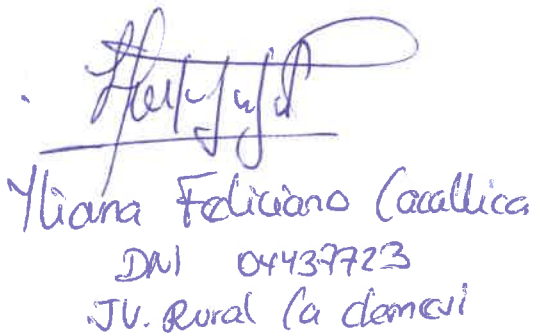 Yliana Feliciano Cacallica
DNI 04437723
JV. Rural Ca demevi